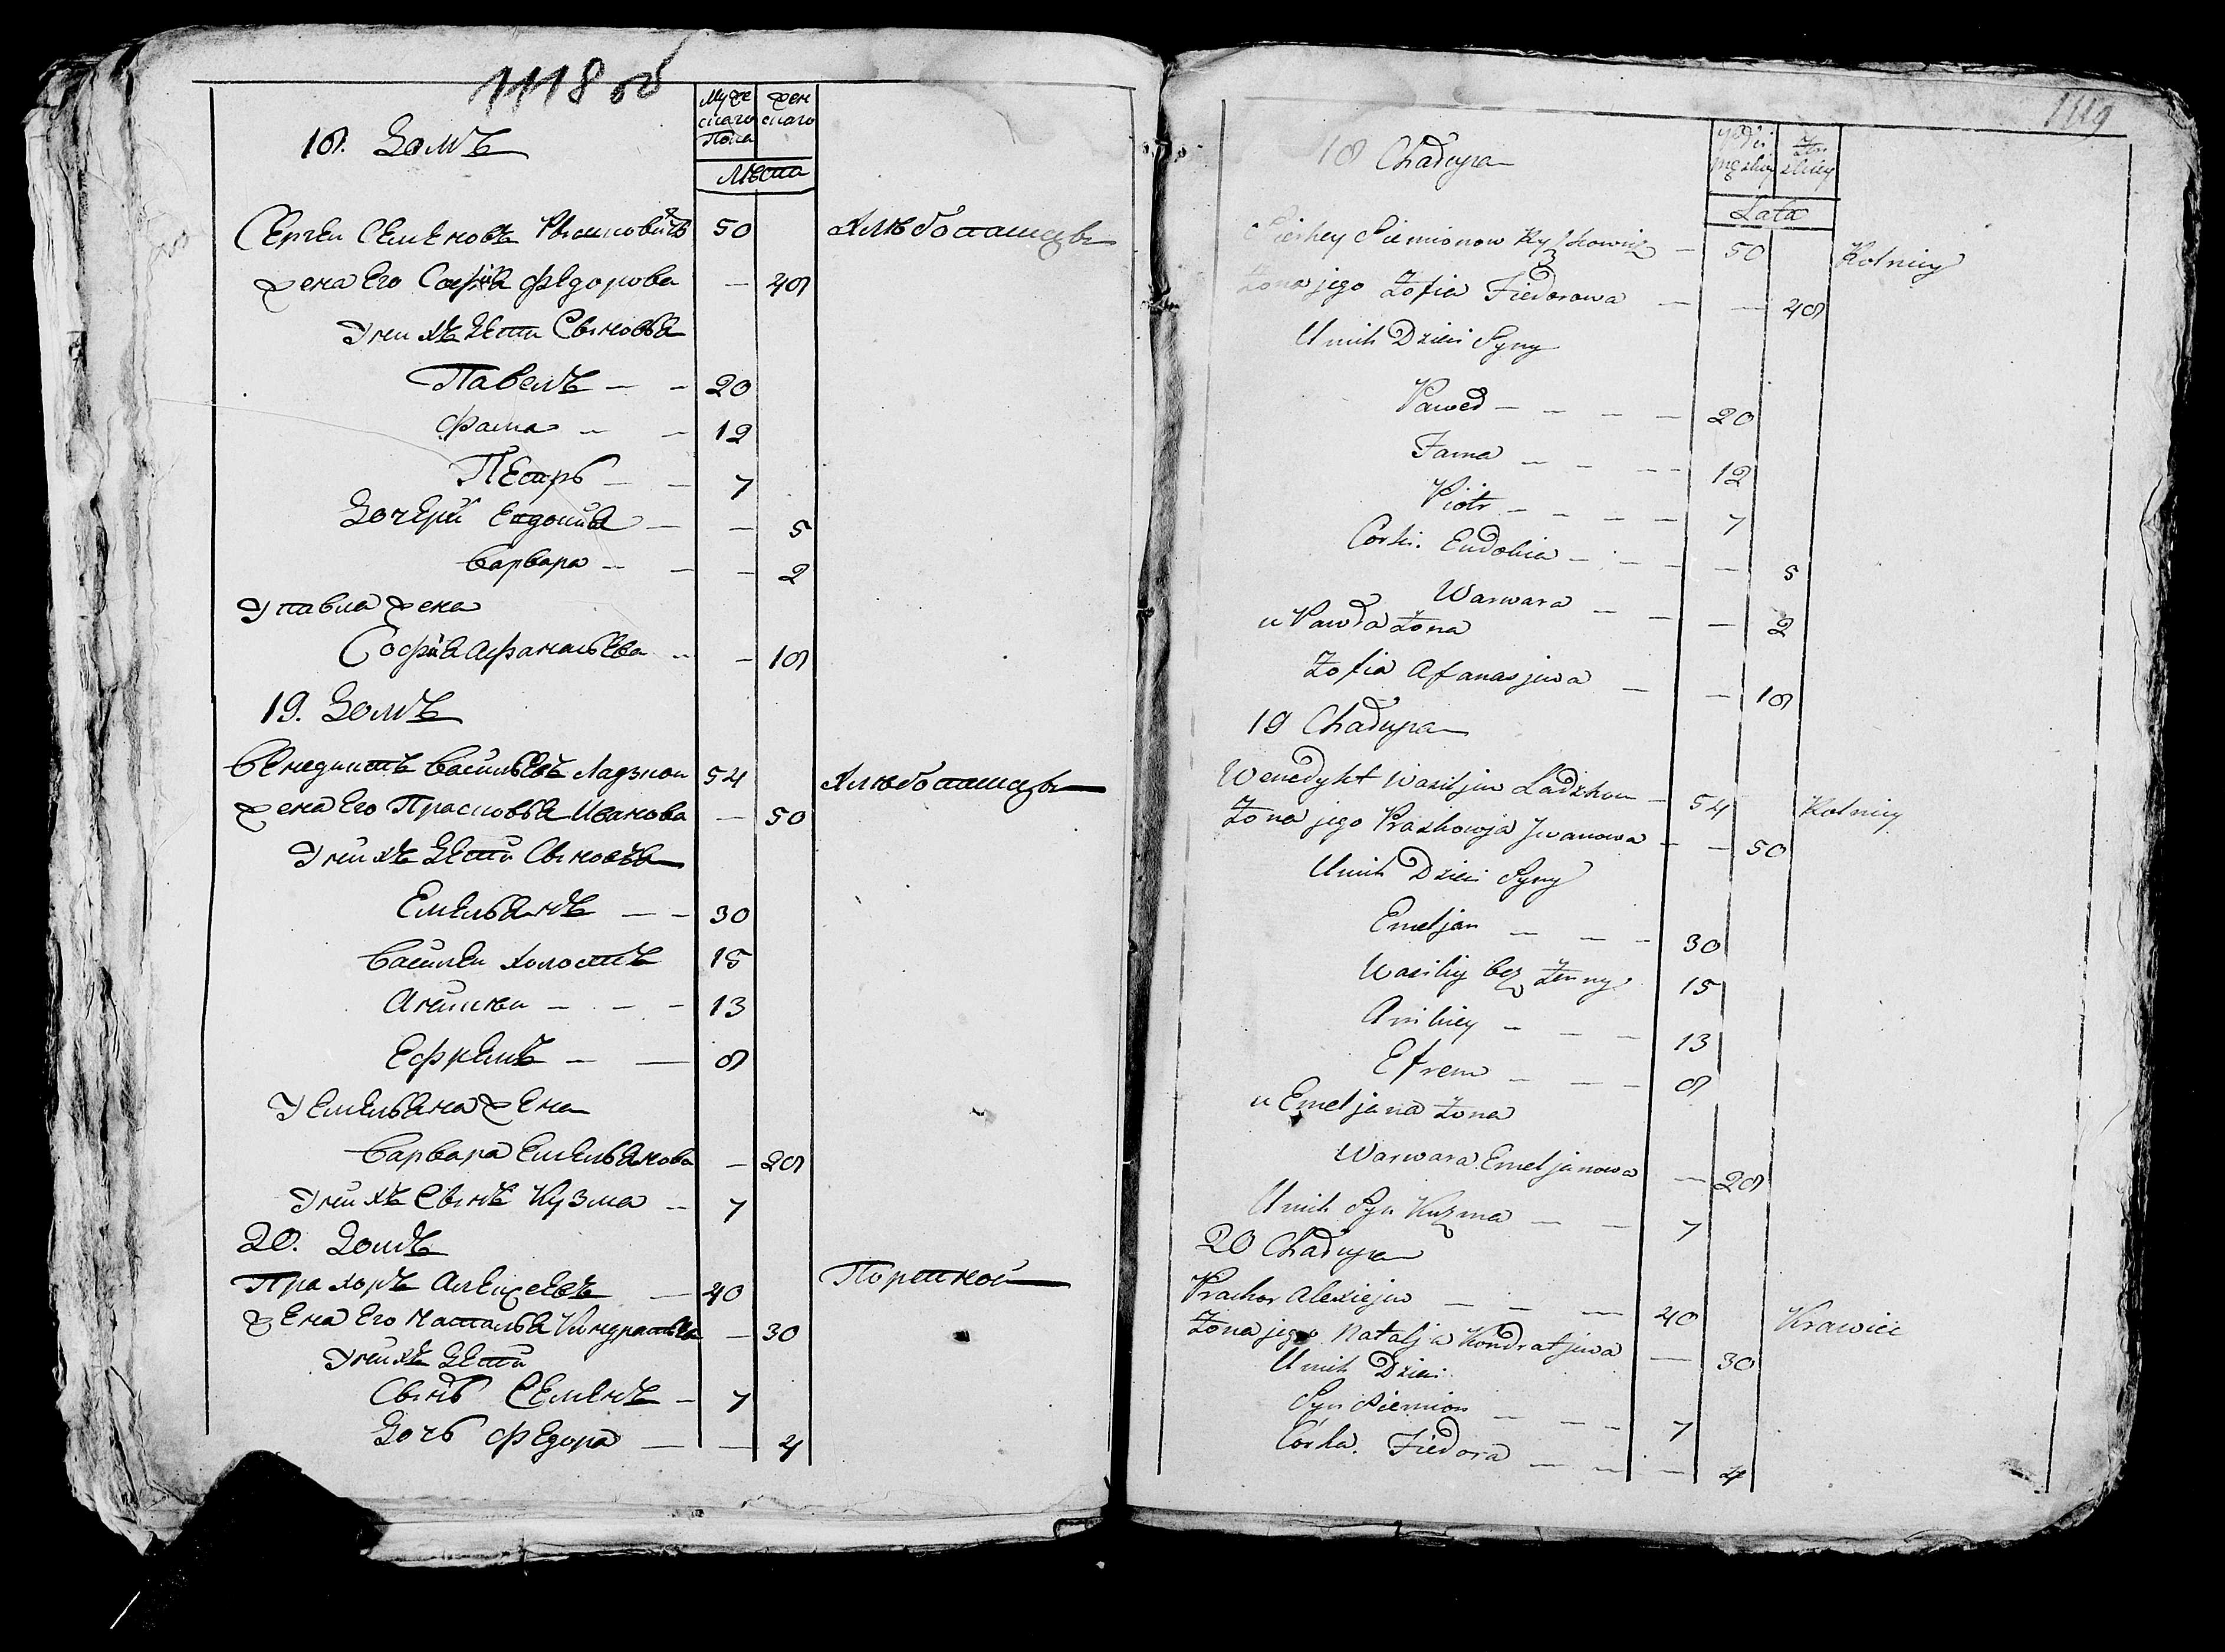 1118 об
Муже
скаго
Пола
жен
скаго
Лѣта
18. Домъ
Сергеи Семеновъ Рышковичъ 50 Хлѣбопашецъ
жена Его Софія Федорова — 48
У них дѣти Сыновья
Павелъ — — 20
Фама — — 12
Петръ — — 7
Дочери Евдокия — — 5
Варвара — — — 2
У павла жена
Софія Афанасьева — — 18
19. Домъ
Венедиктъ Васильевъ Ладзкои 54 Хлѣбопашецъ
жена Его Прасковья Иванова — 50
У нихъ Дѣти Сыновья
Емельянъ — — 30
Василеи холостъ 15
Аникеи — — — 13
Ефремъ — — 8
У Емельяна жена
Варвара Емельянова — 28
У нихъ Сынъ Кузма — 7
20. Домъ
Прахоръ Алексеевъ — 40 Портной
жена Его Наталья Кондратьева — 30
У нихъ Дѣти
Сынъ Семенъ — 7
Дочь Федора — — 4
1119
płci
męzkiey
Żen
skiey
Lata
18 Chałupa
Sierhey Siemionow Ryszkowicz — 50 Rolniey
Żona jego Zofia Fiedorowa — — 48
U nich Dzieci Syny
Paweł — — — — 20
Fama — — — — 12
Piotr — — — — 7
Corki. Eudokia — — — — 5
Warwara — — — 2
u Pawła Żona
Zofia Afanasjewa — — 18
19 Chałupa
Wenedykt Wasiljew Ladzkou — 54 Rolniey
Żona jego Praskowja Jwanowa — — 50
U nich Dzieci Syny
Emeljan — — — 30
Wasiliy bez Żenny 15
Anikiey — — — 13
Efrem — — — 8
u Emeljana Żona
Warwara Emeljanowa — 28
U nich Syn Kuzma — — 7
20 Chałupa
Prachor Alexiejew — — — 40 Krawiec
Żona jego Natalja Kondratjewa — 30
U nich Dzieci
Syn Siemion — — — 7
Córka. Fiedora — — — 4